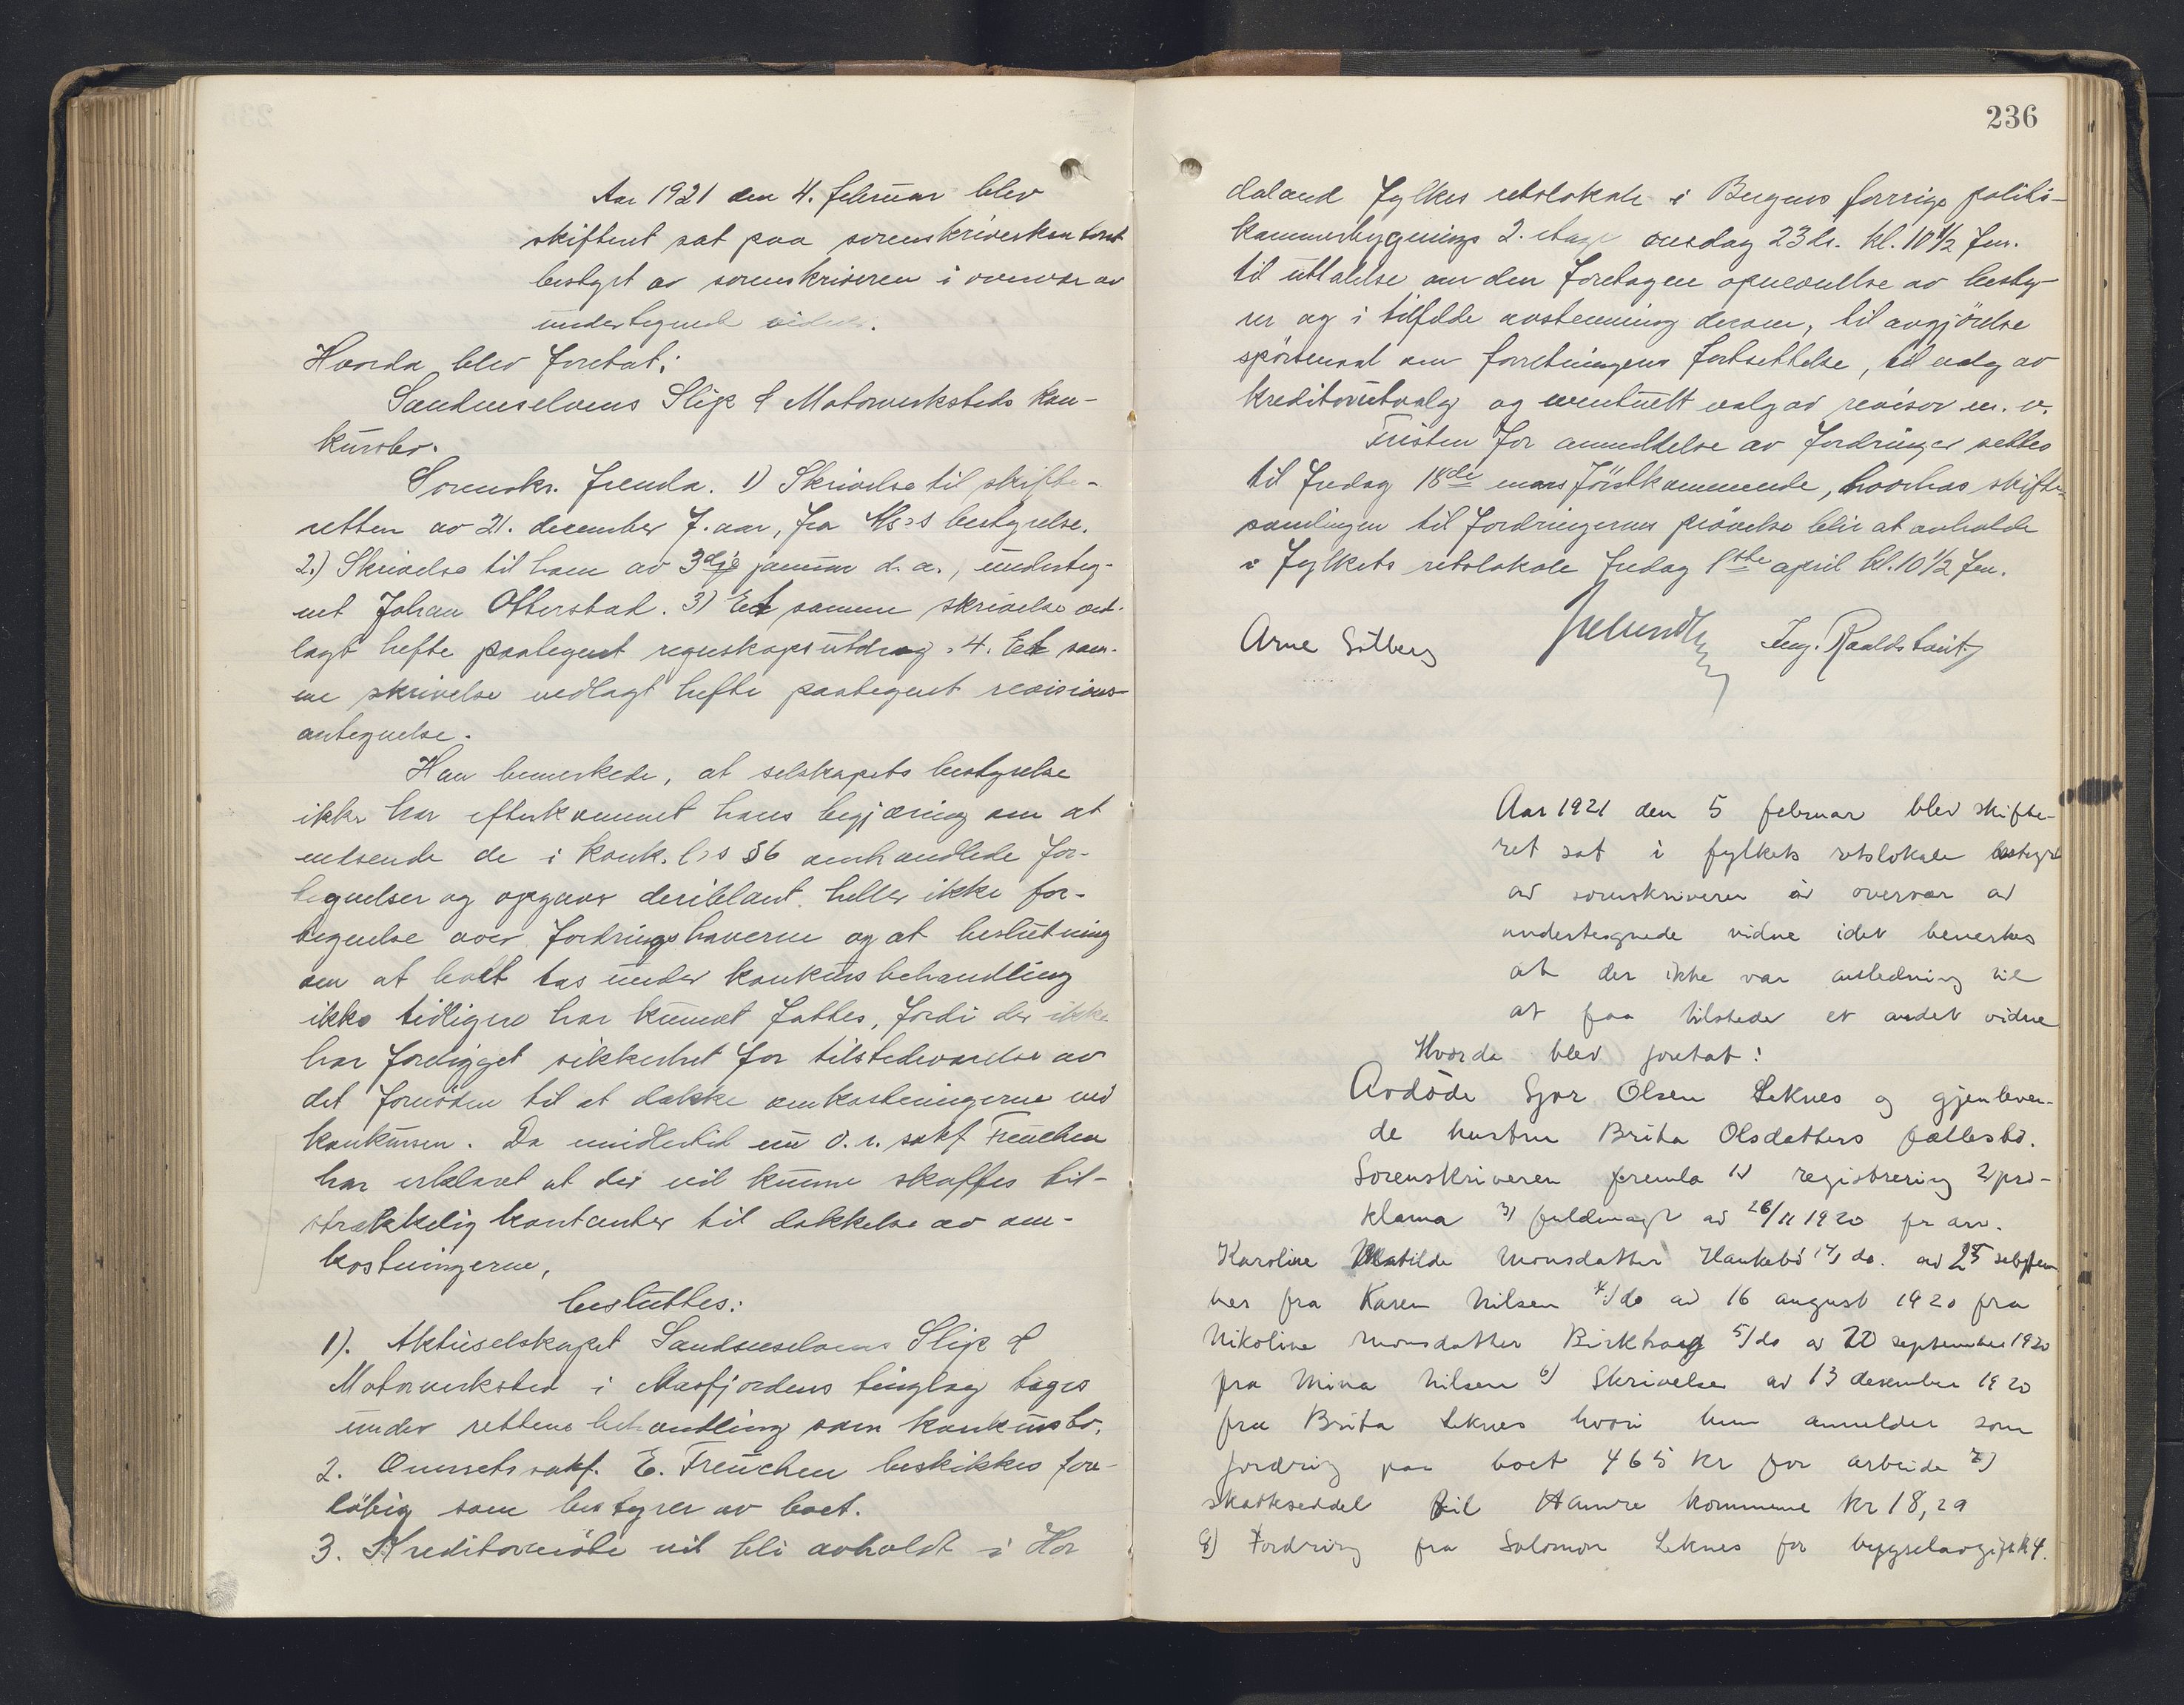 Aar 1921 den 4. februar blev
skifteret sat paa sorenskriverkontoret
bestyrt av sorenskriveren i overvær av
undertegnede vidner.
Hvorda blev foretat:
Sandneselvens Slip & Motorverksteds kon-
kursbo.
Sorenskr. fremla. 1) Skrivelse til skifte-
retten av 21. december f. aar, fra A/s:s bestyrelse.
2.) Skrivelse til ham av 3dje januar d. a., underteg-
net Johan Otterstad. 3) Et samme skrivelse ved-
lagt hefte paategnet regnskapsutdrag. 4. Et sam-
me skrivelse vedlagt hefte paategnet revisions-
antegnelse.
Han bemerkede, at selskapets bestyrelse
ikke har efterkommet hans begjæring om at
indsende de i konk. l:s §6 omhandlede for-
tegnelser og opgaver deriblant heller ikke for-
tegnelse over fordringshaverne og at beslutning
om at boet tas under konkursbehandling
ikke tidligere har kunnet fattes, fordi der ikke
har foreligget sikkerhet for tilstedeværelse av
det fornødne til at dække omkostningerne ved
konkursen. Da imidlertid nu o. r. sakf. Freuchen
har erklæret at der vil kunne skaffes til-
strækkelig kontanter til dækkelse av om-
kostningerne,
besluttes:
1). Aktieselskapet Sandneselvens Slip &
Motorverksted i Masfjordens tinglag tages
under rettens behandling som konkursbo.
2. Overretssakf. E. Freuchen beskikkes fore-
løbig som bestyrer av boet.
3. Kreditormøte vil bli avholdt i Hor
236
daland fylkes retslokale i Bergens forrige politi-
kammerbygnings 2. etage onsdag 23 ds. kl. 10 1/2 fm.
til uttalelse om den foretagne opnevnelse av besty-
rer og i tilfælde avstemning derom, til avgjørelse
spørsmaal om forretningens fortsettelse, til valg av
kreditorutvalg og eventuelt valg av revisor m. v.
Fristen for anmeldelse av fordringer settes
til fredag 18de mars førstkommende, hvorhos skifte-
samlingen til fordringernes prøvelse blir at avholde
i fylkets retslokale fredag 1ste april kl. 10 1/2 fm.
Arne Solberg
Aar 1921 den 5 februar blev skifte-
ret sat i fylkets retslokale bestyrt
av sorenskriveren i overvær av
undertegnede vidne idet bemerkes
at der ikke var anledning til
at faa tilstede et andet vidne
Hvorda blev foretat:
Avdøde Sjur Olsen Leknes og gjenleven-
de hustru Brita Olsdatters fællesbo.
Sorenskriveren fremla 1) registrering 2) pro-
klama 3) fuldmagt av 26/11 1920 fr arv.
Karoline Matilde Monsdatter do. av 25 septem
ber fra Karen Nilsen 4) do av 16 august 1920 fra
Nikoline Monsdatter Birkhaug 5) do av 22 september 1920
fra Mina Nilsen 6) Skrivelse av 13 desember 1920
fra Brita Leknes hvori hun anmelder som
fordring paa boet 465 kr for arbeide 7)
skatteseddel til Hamre kommune kr 18,29
8) Fordring fra Salomon Leknes for bygselavgift k 4.